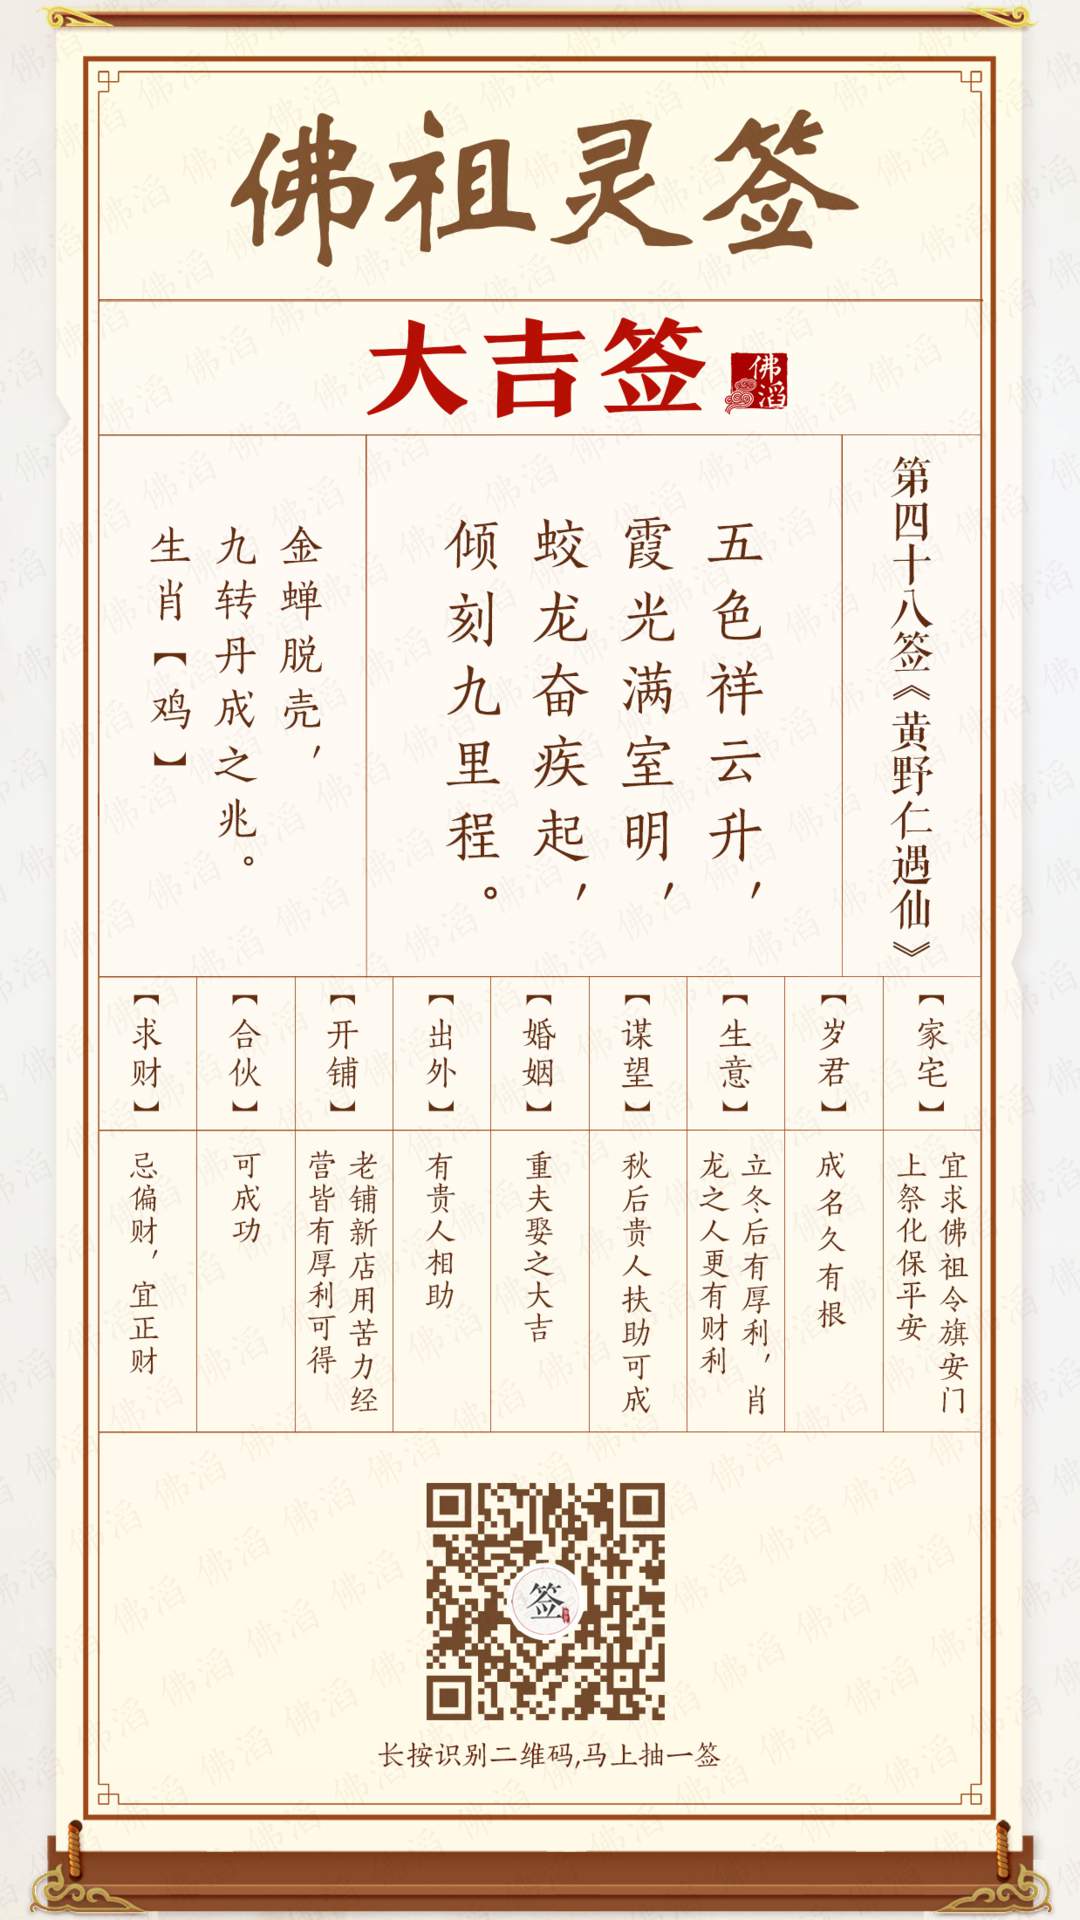 佛祖灵签
大吉签
佛滔
第四十八签《黄野仁遇仙》
五色祥云升，
霞光满室明，
蛟龙奋疾起，
倾刻九里程。
金蝉脱壳，
九转丹成之兆。
生肖【鸡】
【家宅】
宜求佛祖令旗安门
上祭化保平安
【岁君】
成名久有根
【生意】
立冬后有厚利，肖
龙之人更有财利
【谋望】
秋后贵人扶助可成
【婚姻】
重夫娶之大吉
【出外】
有贵人相助
【开铺】
老铺新店用苦力经
营皆有厚利可得
【合伙】
可成功
【求财】
忌偏财，宜正财
签
长按识别二维码,马上抽一签